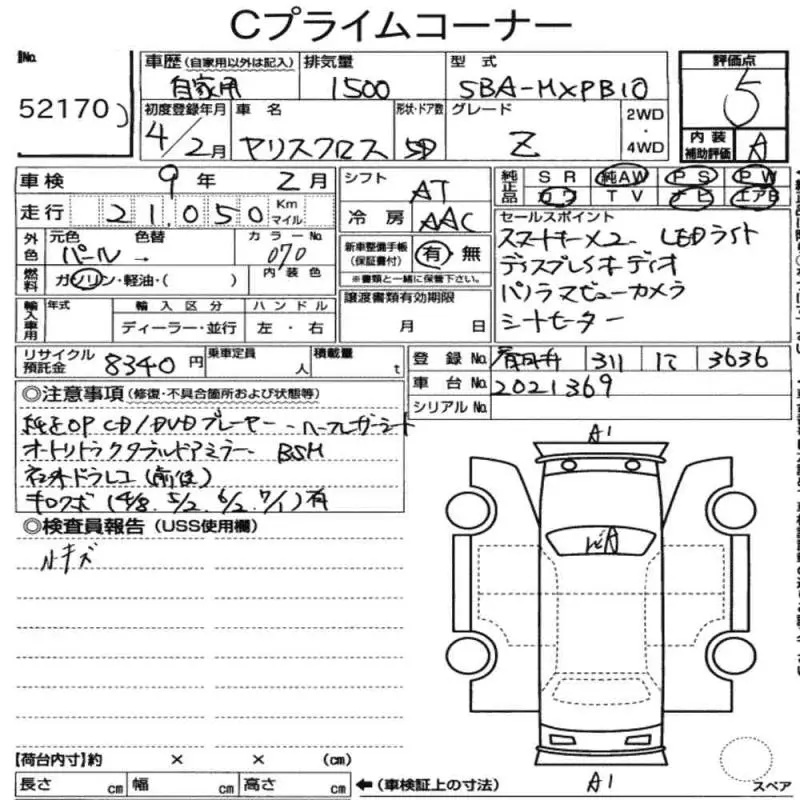 Cプライムコーナー
No.
52170
車歴 (自家用以外は記入) 自家用
排気量 1500
型式 5BA-MXPB10
評価点 5
内装補助評価 A
初度登録年月 4/2月
車名 ヤリスクロス
形状・ドア数 5D
グレード Z
2WD・4WD
車検 9年 2月
シフト AT
純正品 SR 純AW PS PW
カワ TV ナビ エアB
走行 21,050 Km マイル
冷房 AAC
セールスポイント
スマートキー×2 LEDライト
ディスプレイオーディオ
パノラマビューカメラ
シートヒーター
外色 元色 パール 色替 →
カラーNo. 070
新車整備手帳 (保証書付) 有・無
※書類と一緒に保管下さい。
燃料 ガソリン・軽油・( )
内装色
輸入車用 年式
輸入区分 ディーラー・並行
ハンドル 左・右
譲渡書類有効期限
月 日
リサイクル預託金 8340円
乗車定員 人
積載量 t
登録No. 311 3636
車台No. 2021369
シリアルNo.
◎注意事項(修復・不具合箇所および状態等)
純正OP CD/DVDプレーヤー ハーフレザーシート
オートリトラクタブルドアミラー BSM
ドラレコ(前後)
キロクボ(4/8. 5/2. 6/2. 7/1)有
◎検査員報告(USS使用欄)
ルキズ
A1
A
A1
【荷台内寸】約 × × (cm)
長さ cm 幅 cm 高さ cm
←(車検証上の寸法)
スペア